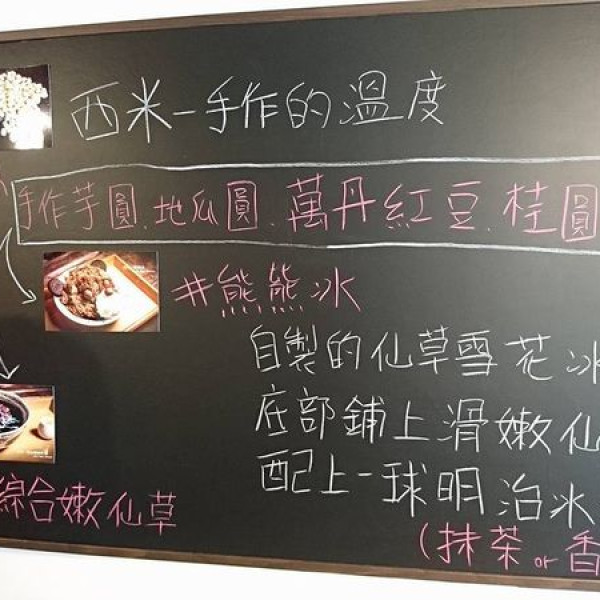 西米－手作的溫度
手作芋圓、地瓜圓、萬丹紅豆、桂圓
#熊熊冰
自製的仙草雪花冰
底部鋪上滑嫩仙
配上一球明治冰
(抹茶 or 香
綜合嫩仙草